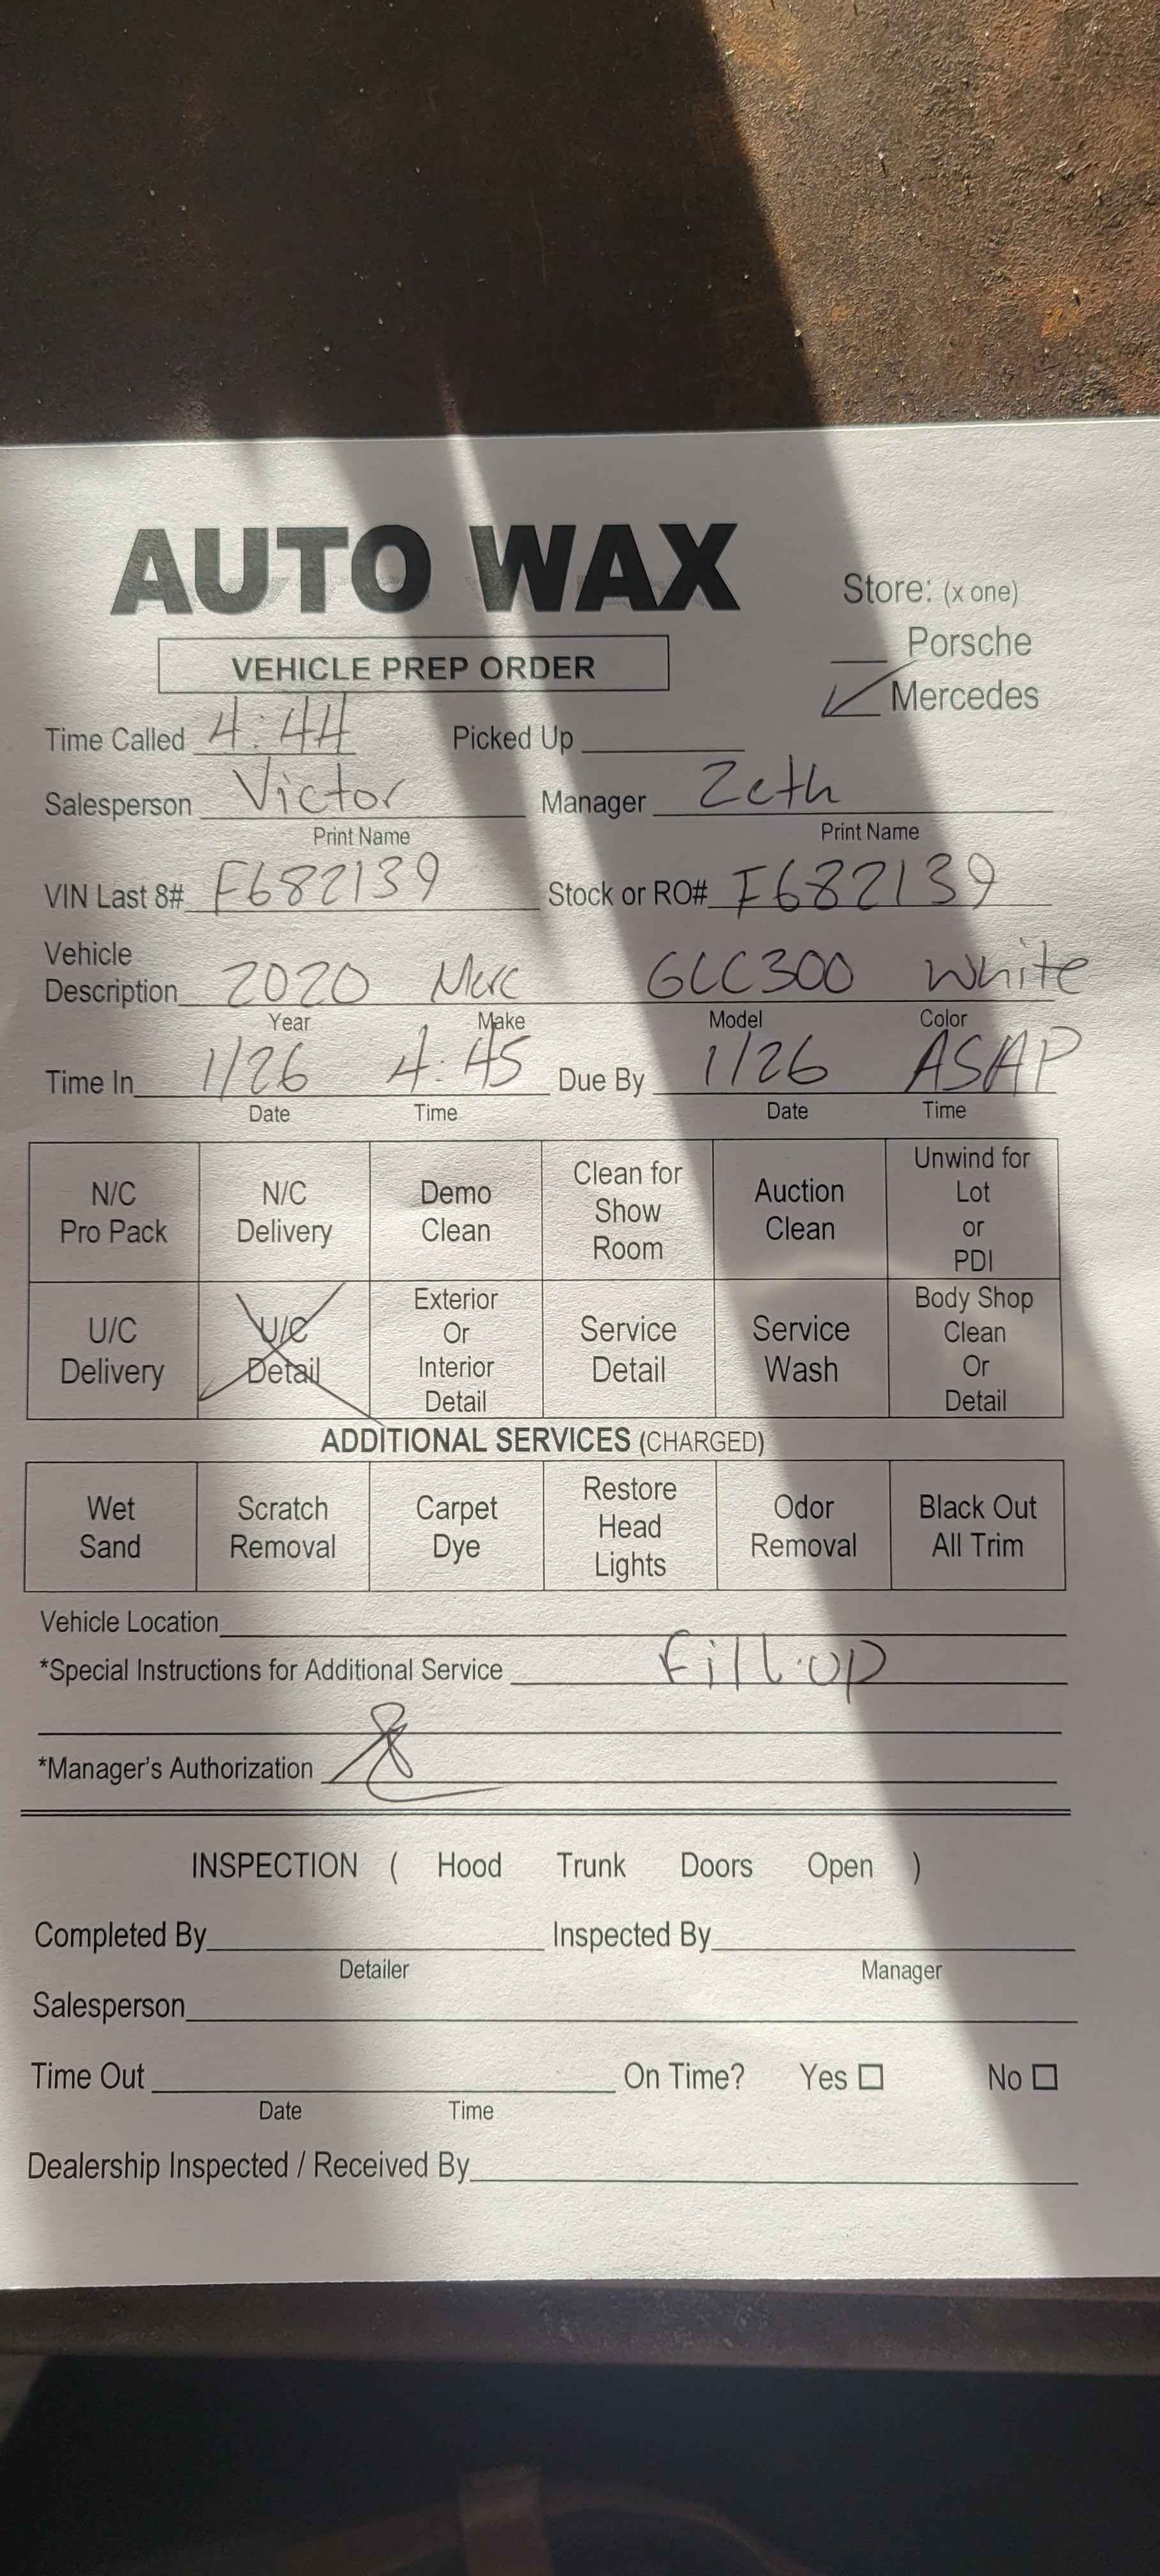 AUTO WAX
Store: (x one)
VEHICLE PREP ORDER
Porsche
Mercedes
Time Called 4:44 Picked Up
Salesperson Victor Manager Zeth
Print Name Print Name
VIN Last 8# F682139 Stock or RO# F682139
Vehicle
Description 2020 Merc GLC300 White
Year Make Model Color
Time In 1/26 4:45 Due By 1/26 ASAP
Date Time Date Time
N/C Pro Pack N/C Delivery Demo Clean Clean for Show Room Auction Clean Unwind for Lot or PDI
U/C Delivery U/C Detail Exterior Or Interior Detail Service Detail Service Wash Body Shop Clean Or Detail
ADDITIONAL SERVICES (CHARGED)
Wet Sand Scratch Removal Carpet Dye Restore Head Lights Odor Removal Black Out All Trim
Vehicle Location
*Special Instructions for Additional Service Fill up
*Manager's Authorization
INSPECTION ( Hood Trunk Doors Open )
Completed By Inspected By
Detailer Manager
Salesperson
Time Out On Time? Yes No
Date Time
Dealership Inspected / Received By